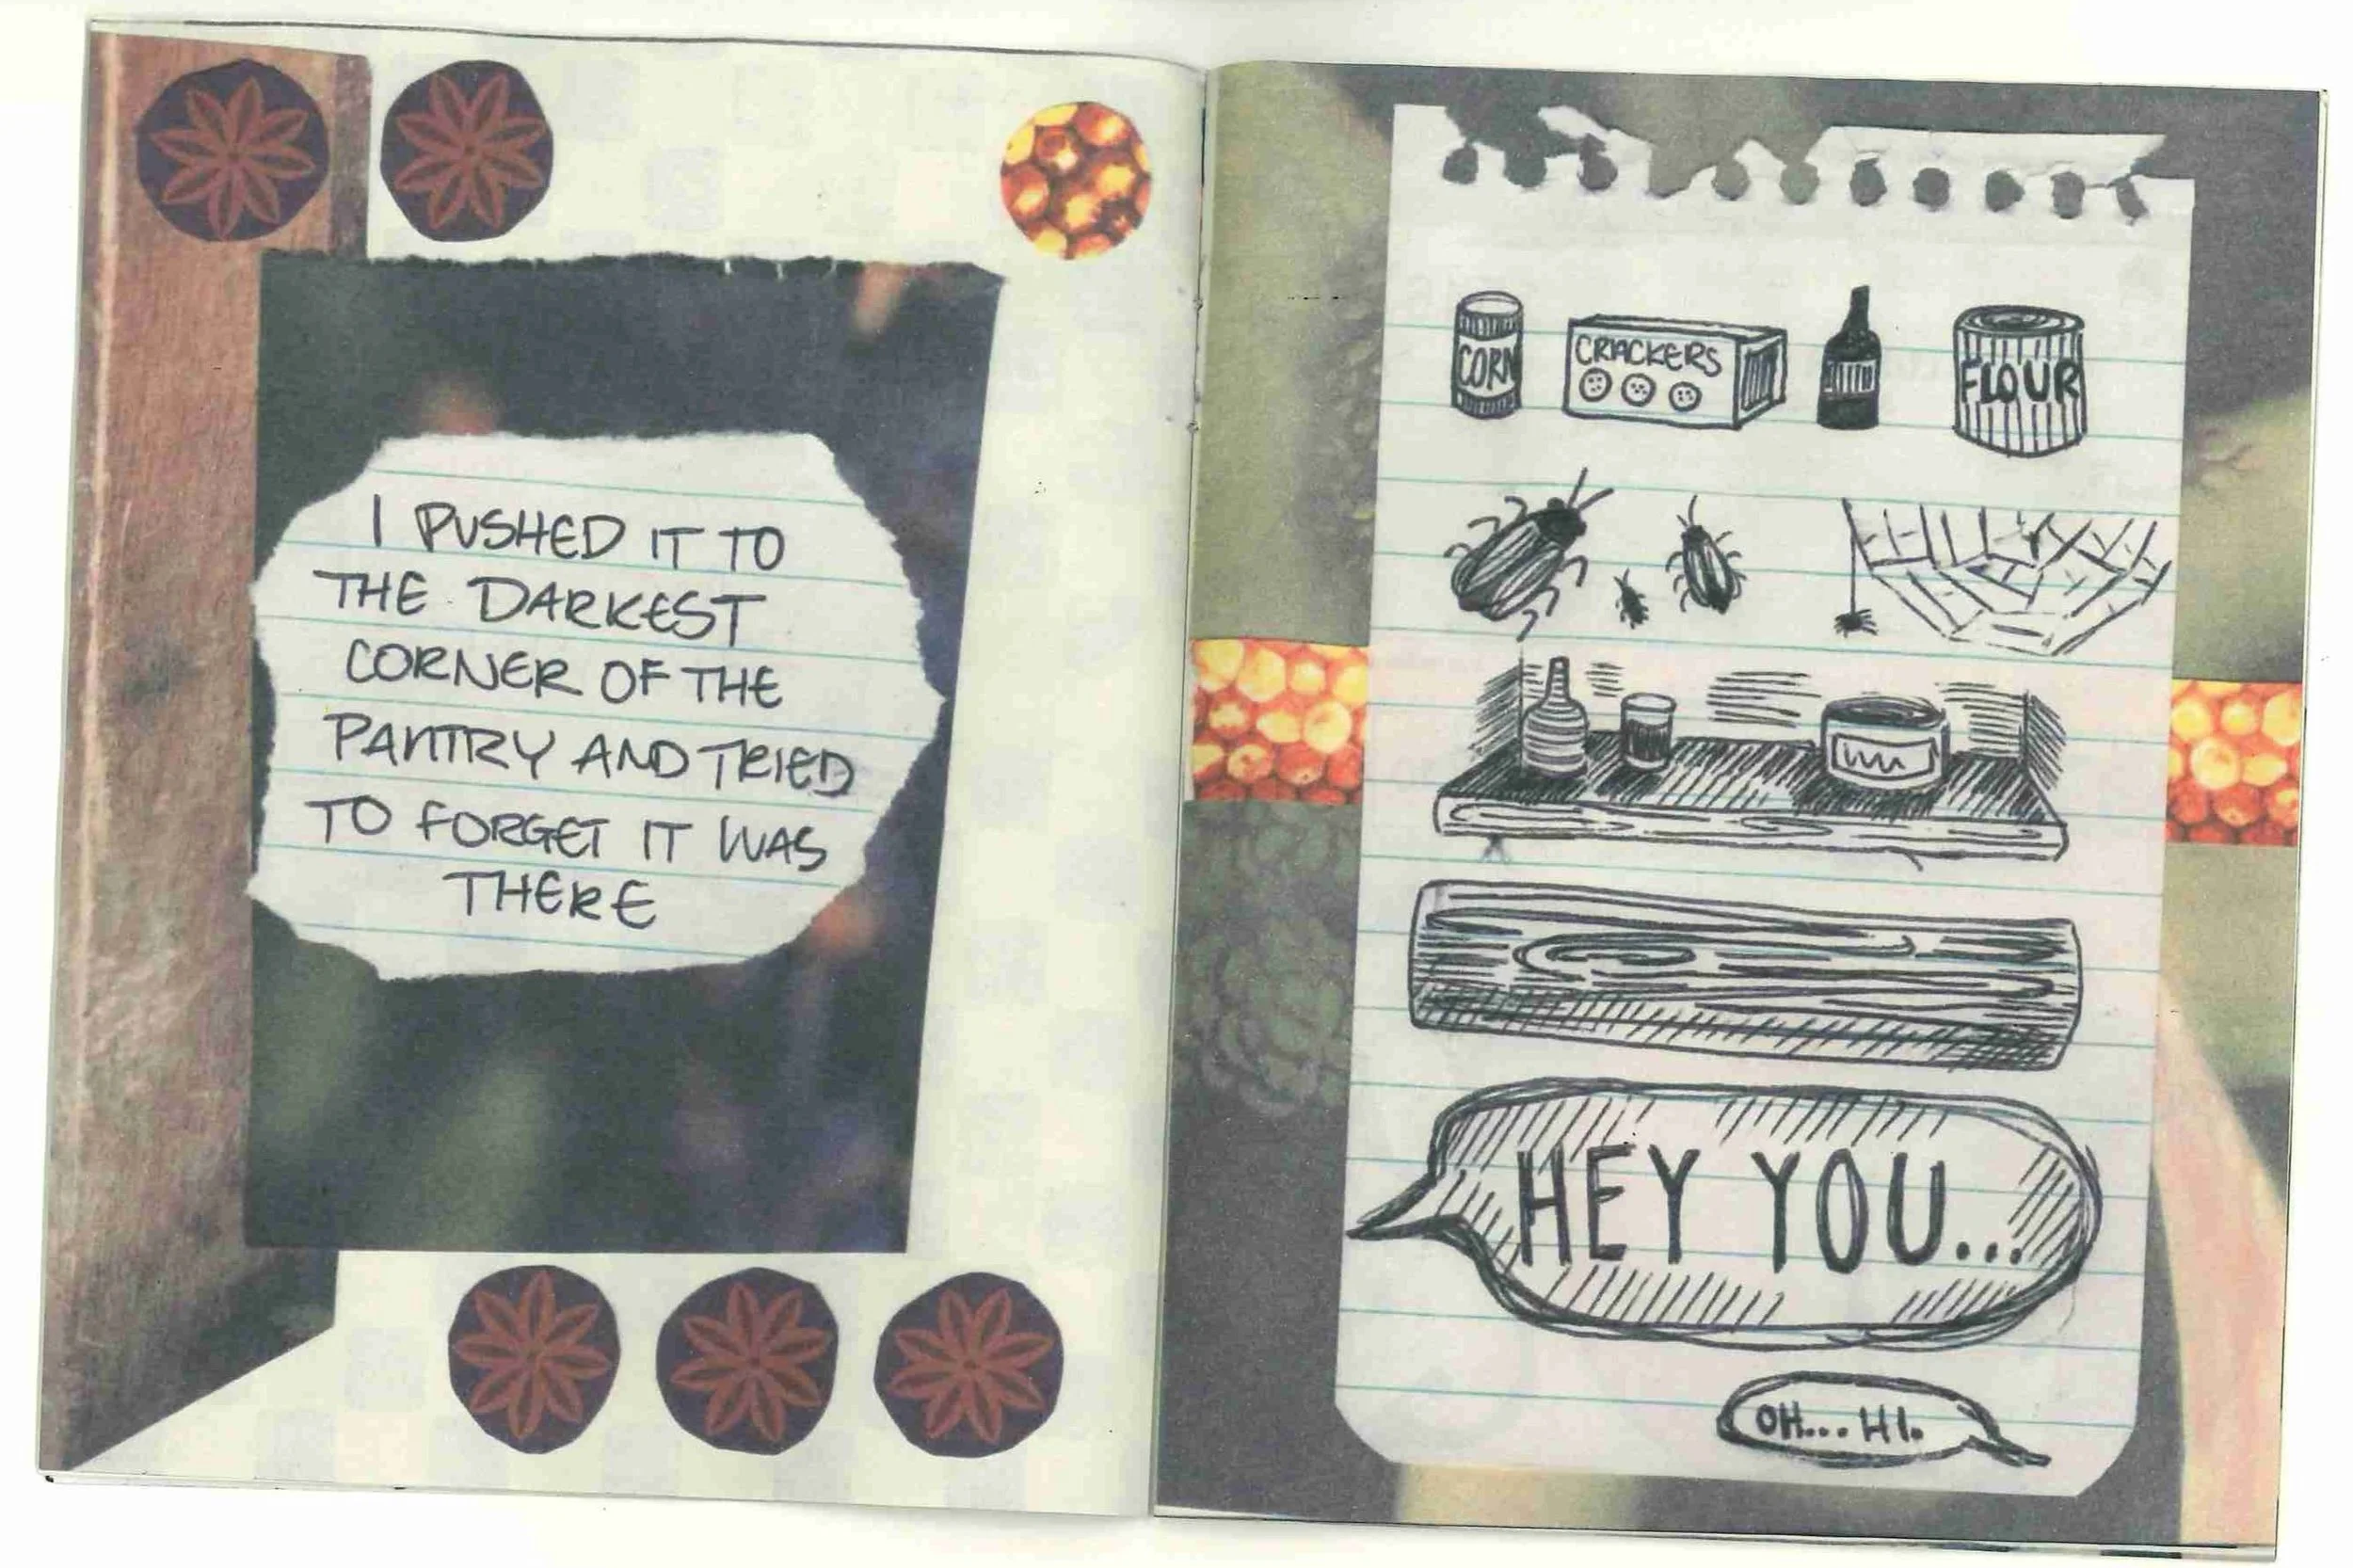 I PUSHED IT TO
THE DARKEST
CORNER OF THE
PANTRY AND TRIED
TO FORGET IT WAS
THERE
CORN
CRACKERS
FLOUR
HEY YOU...
OH... HI.